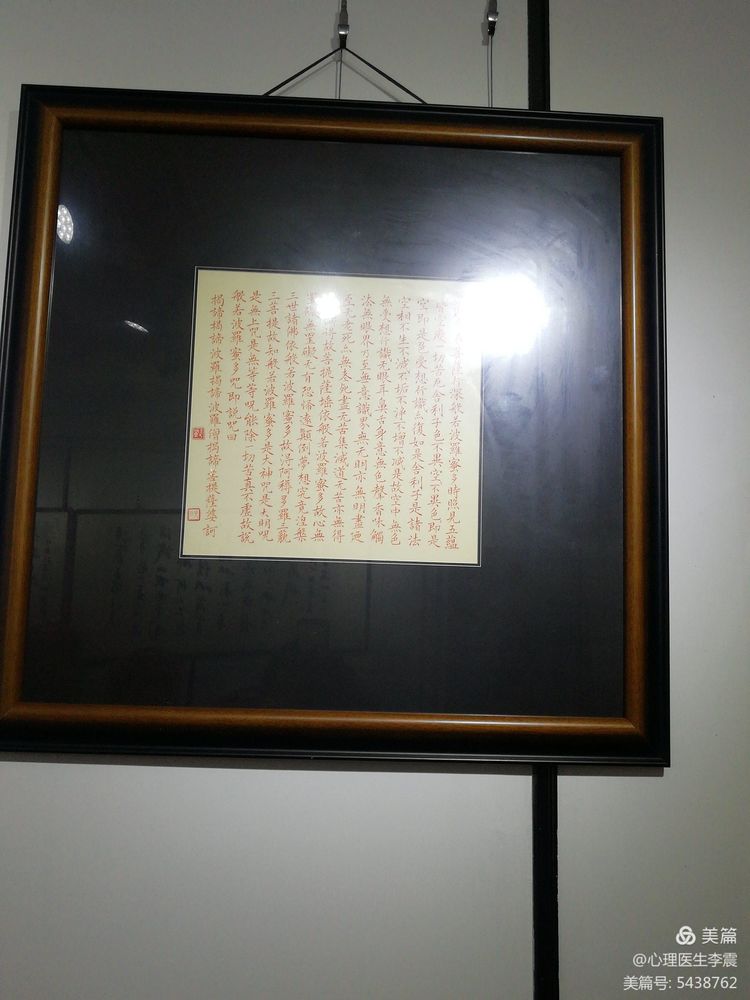 行深般若波羅蜜多時照見五蘊
一切苦厄舍利子色不異空不異色即是
空即是色受想行識亦復如是舍利子是諸法
空相不生不滅不垢不淨不增不減是故空中無色
無受想行識无眼耳鼻舌身意無色聲香味觸
法無眼界乃至無意識界無无明亦無明盡
至无老死亦無老死盡无苦集滅道无苦亦無得
得故菩提薩埵依般若波羅蜜多故心無
罣礙無罣礙故无有恐怖遠離顛倒夢想究竟涅槃
三世諸佛依般若波羅蜜多故得阿耨多羅三藐
三菩提故知般若波羅蜜多是大神咒是大明咒
是無上咒是無等等咒能除一切苦真不虛故說
般若波羅蜜多咒即說咒曰
揭諦揭諦波羅揭諦波羅僧揭諦菩提薩婆訶
美篇
@心理医生李震
美篇号: 5438762